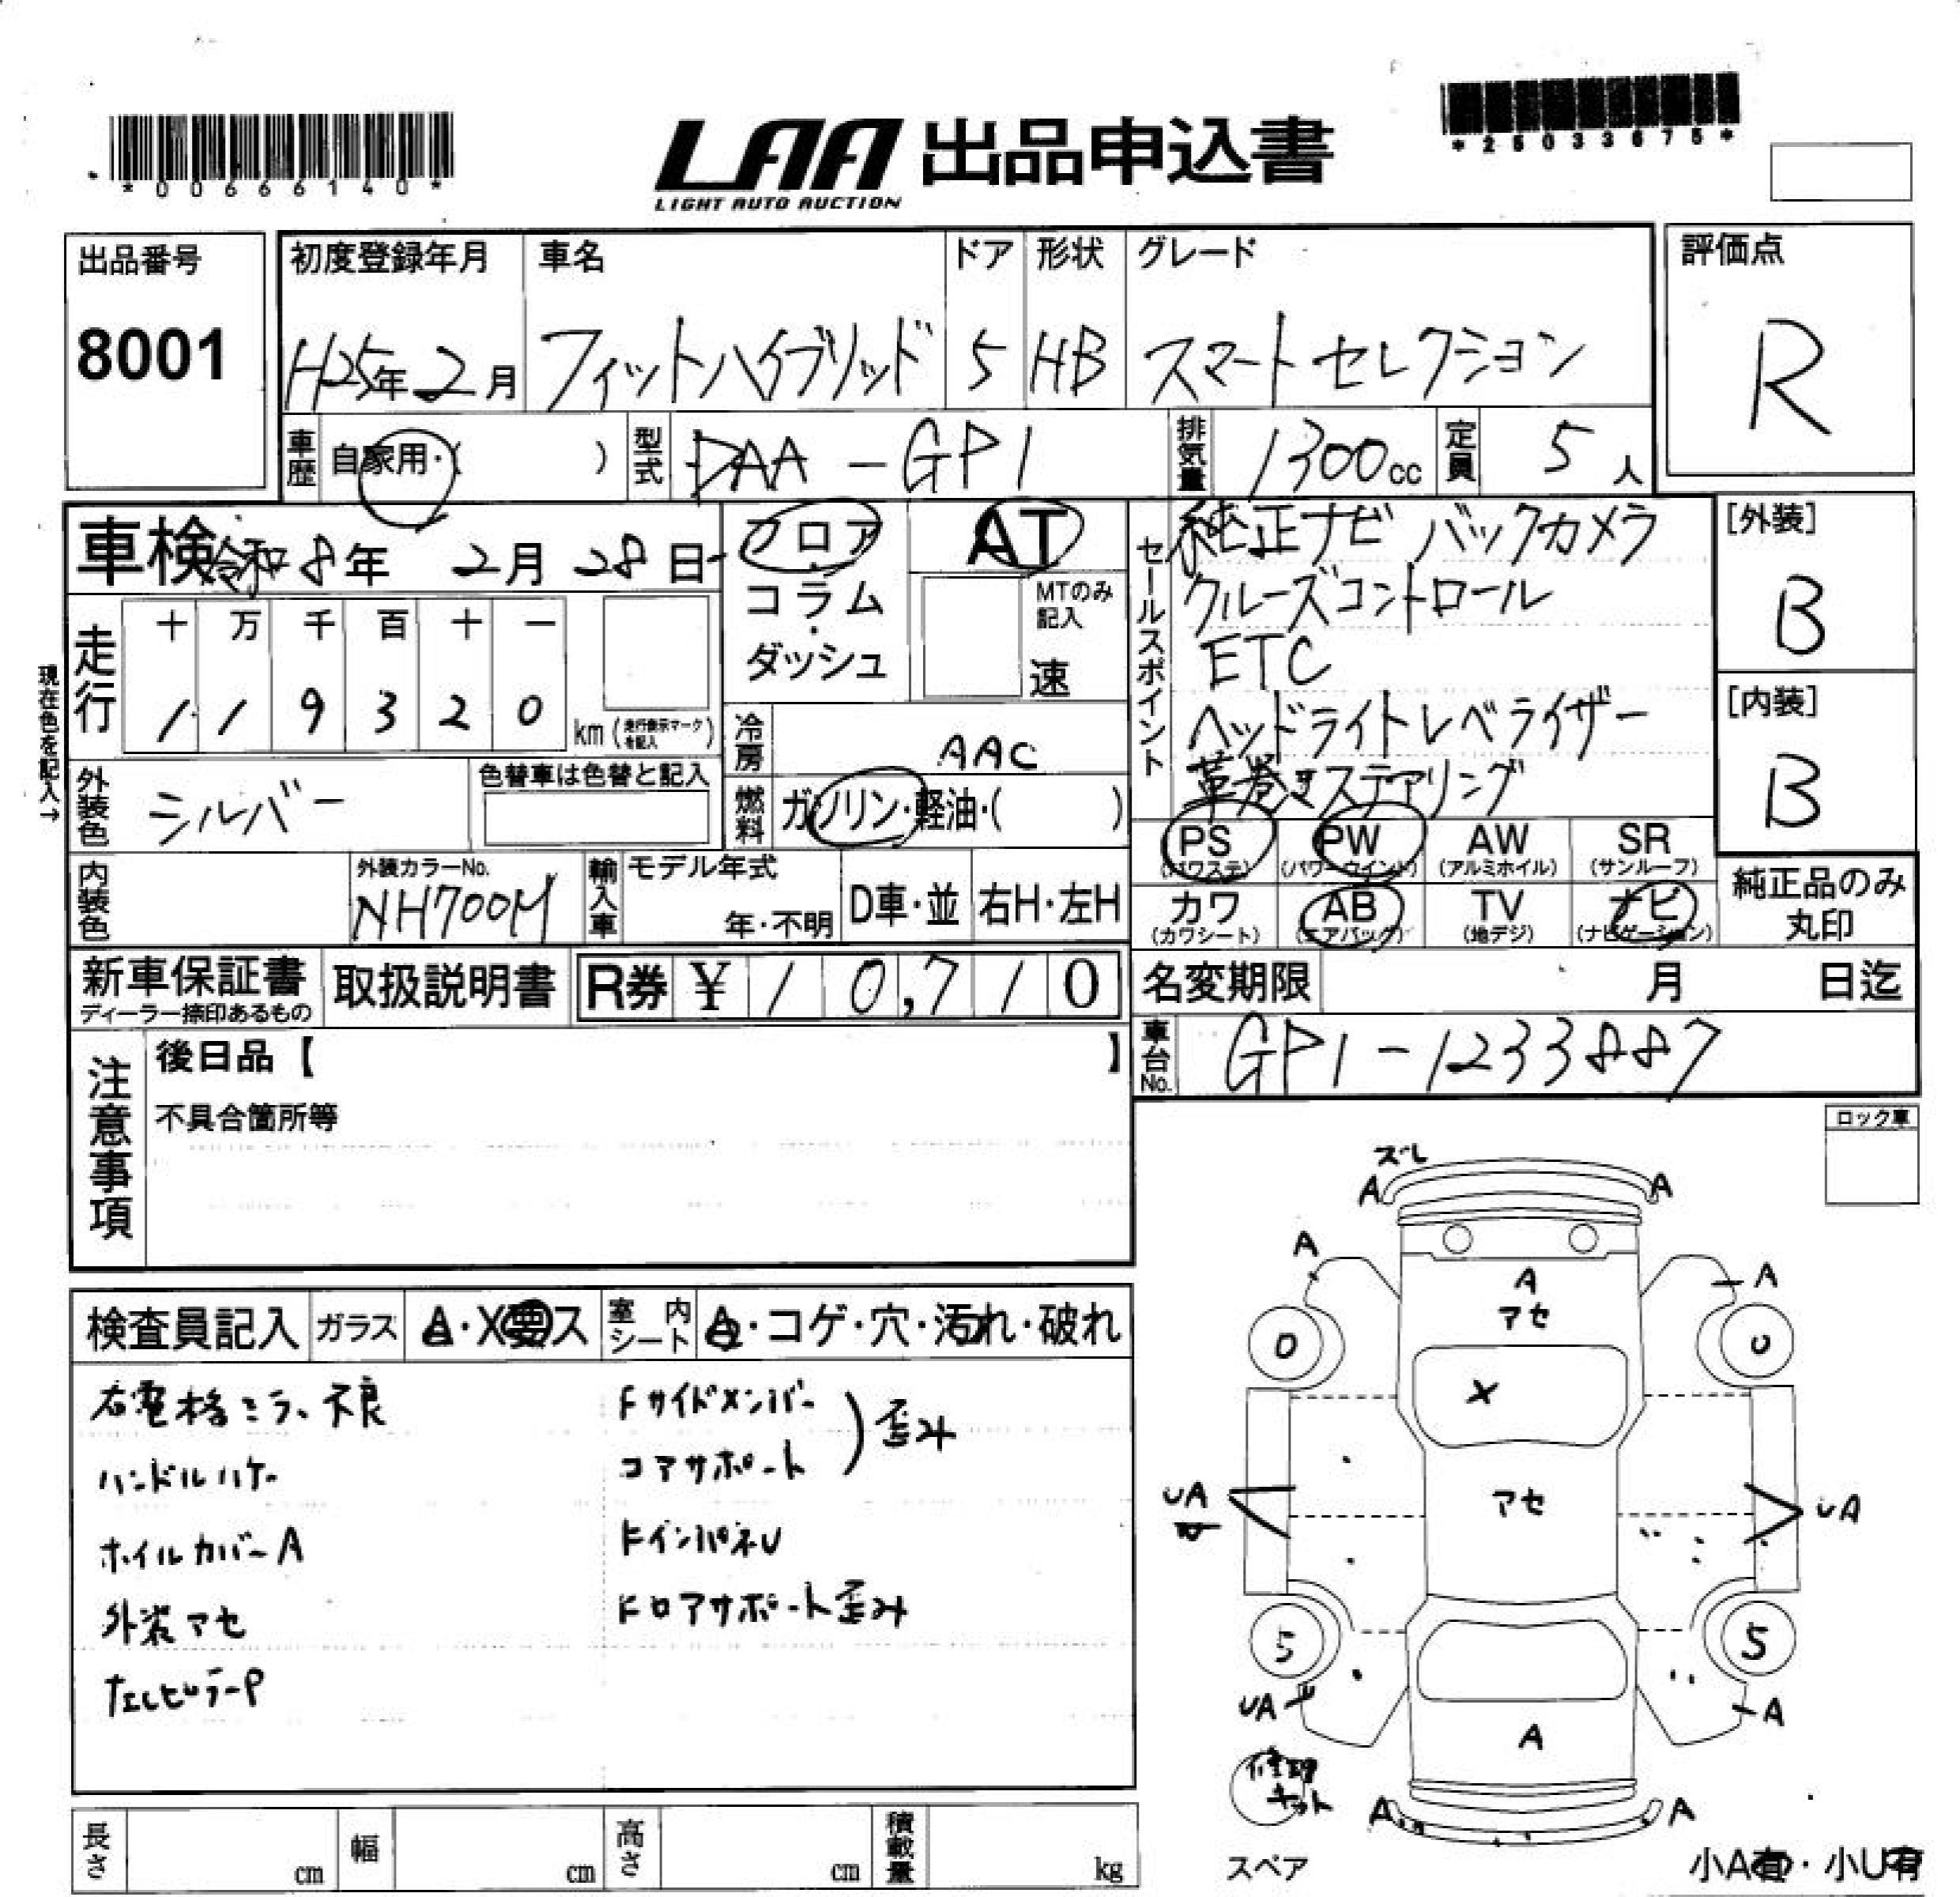 *00666140*
LAA 出品申込書
LIGHT AUTO AUCTION
*25033675*
出品番号
8001
初度登録年月
H25年2月
車名
フィットハイブリッド
ドア
5
形状
HB
グレード
スマートセレクション
評価点
R
車歴
自家用・( )
型式
DAA-GP1
排気量
1300cc
定員
5人
車検 令和8年 2月 28日
フロア
・
コラム
・
ダッシュ
AT
MTのみ
記入
速
セールスポイント
純正ナビ バックカメラ
クルーズコントロール
ETC
ヘッドライトレベライザー
革巻きステアリング
[外装]
B
[内装]
B
現在色を記入→
走行
十 万 千 百 十 一
1 1 9 3 2 0
km (走行表示マークを記入)
冷房
AAC
外装色
シルバー
色替車は色替と記入
燃料
ガソリン・軽油・( )
PS
(パワステ)
PW
(パワーウインド)
AW
(アルミホイル)
SR
(サンルーフ)
カワ
(カワシート)
AB
(エアバッグ)
TV
(地デジ)
ナビ
(ナビゲーション)
純正品のみ
丸印
内装色
外装カラーNo.
NH700M
輸入車
モデル年式
年・不明
D車・並
右H・左H
新車保証書
ディーラー捺印あるもの
取扱説明書
R券 ¥10,710
名変期限 月 日迄
車台No.
GP1-1233887
注意事項
後日品【 】
不具合箇所等
ロック車
検査員記入
ガラス
A・X要ス
室内シート
A・コゲ・穴・汚れ・破れ
右電格ミラー不良
ハンドルハゲ
ホイルカバーA
外装アセ
Fサイドメンバー
コアサポート
歪み
FインパネU
Fロアサポート歪み
ズレ
A
A
A
A
A
アセ
0
0
X
UA
アセ
UA
5
5
UA
A
A
修理
キット
A
A
スペア
小A有・小U有
長さ
cm
幅
cm
高さ
cm
積載量
kg